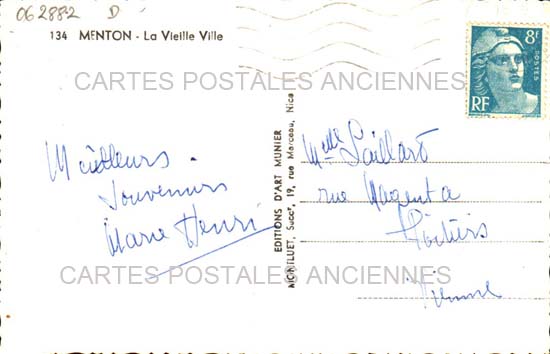 062882 D
134 MENTON - La Vieille Ville
8F
POSTES
RF
CARTES POSTALES ANCIENNES
Meilleurs
souvenirs
Marie Henri
EDITIONS D'ART MUNIER
MONTLUET, Succr, 19, rue Marceau, Nice
Melle Gaillard
rue Magenta
Poitiers
Vienne
CARTES POSTALES ANCIENNES